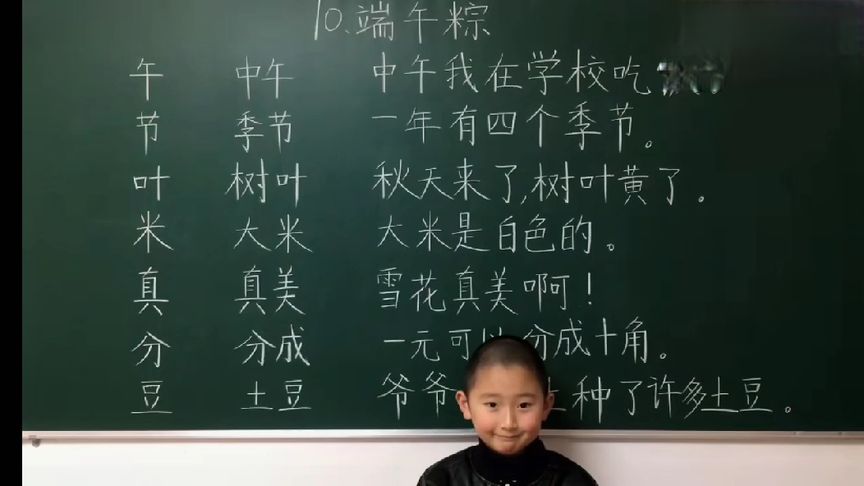 10.端午粽
午 中午 中午我在学校吃
节 季节 一年有四个季节。
叶 树叶 秋天来了,树叶黄了。
米 大米 大米是白色的。
真 真美 雪花真美啊!
分 分成 一元可以分成十角。
豆 土豆 爷爷 上种了许多土豆。